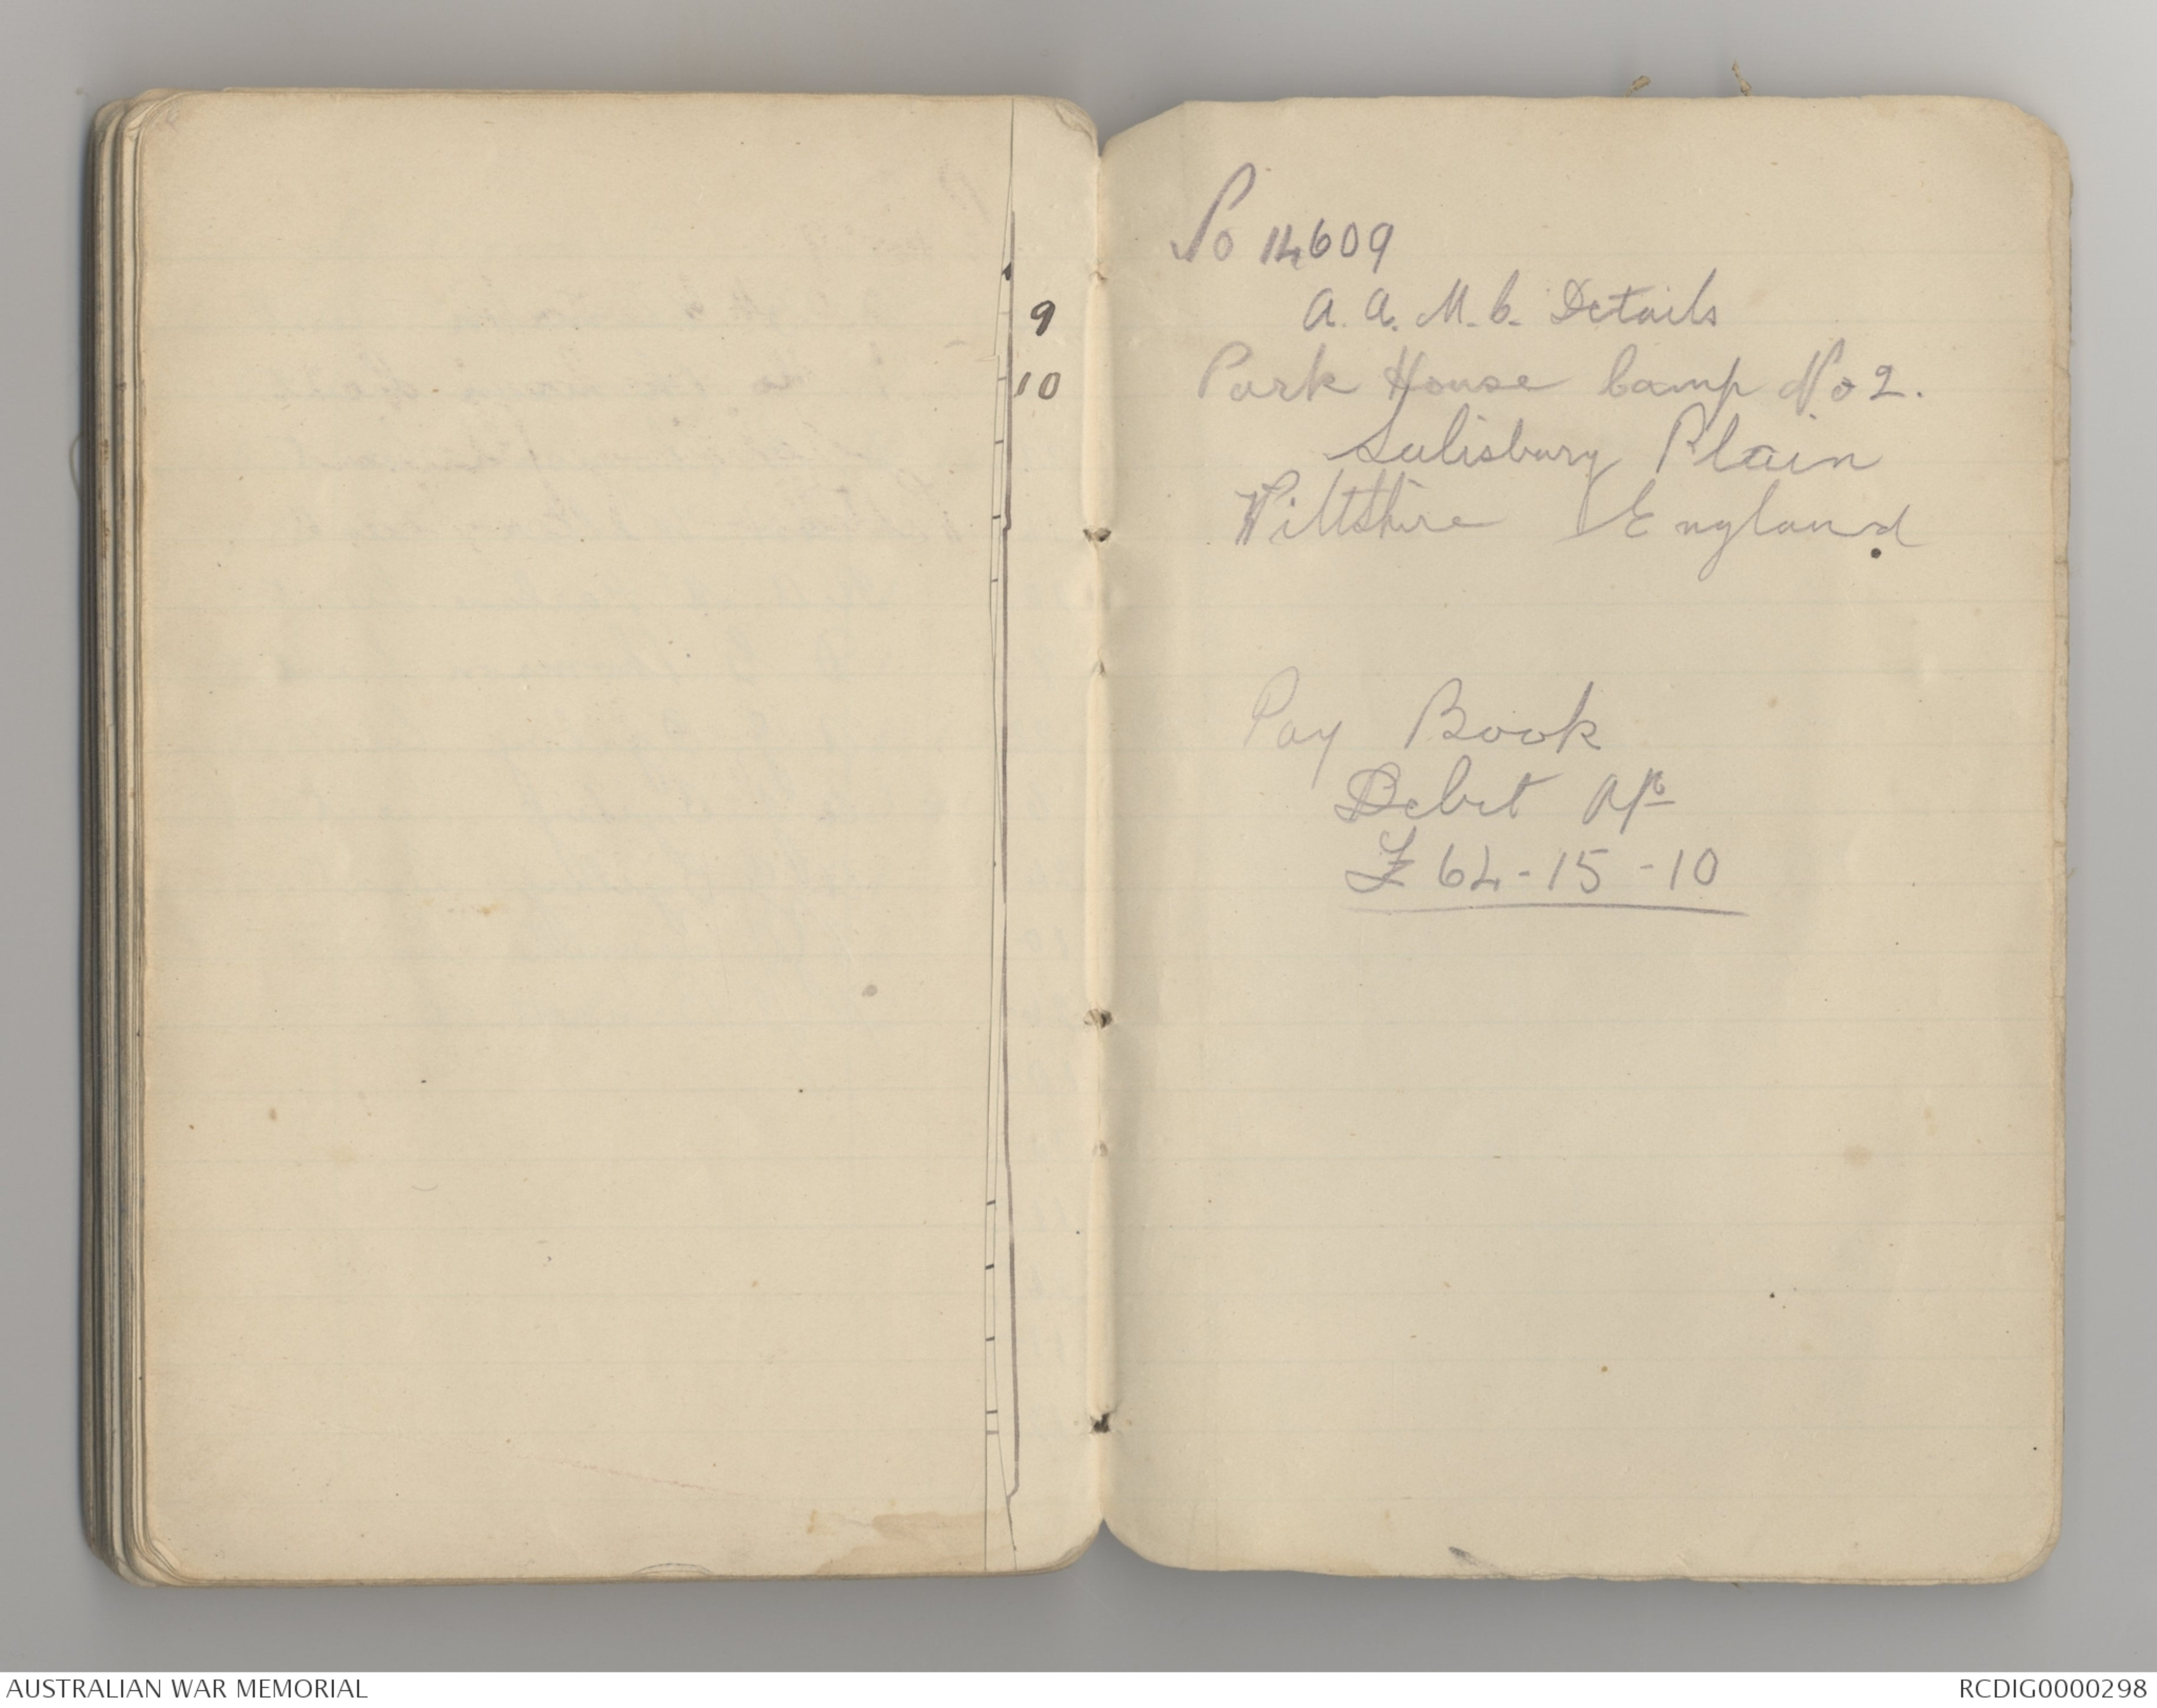 9
10
No 14609
A. A. M. C. Details
Park House Camp No 2.
Salisbury Plain
Wiltshire England
Pay Book
Debit A/c
£ 64-15-10
AUSTRALIAN WAR MEMORIAL
RCDIG0000298